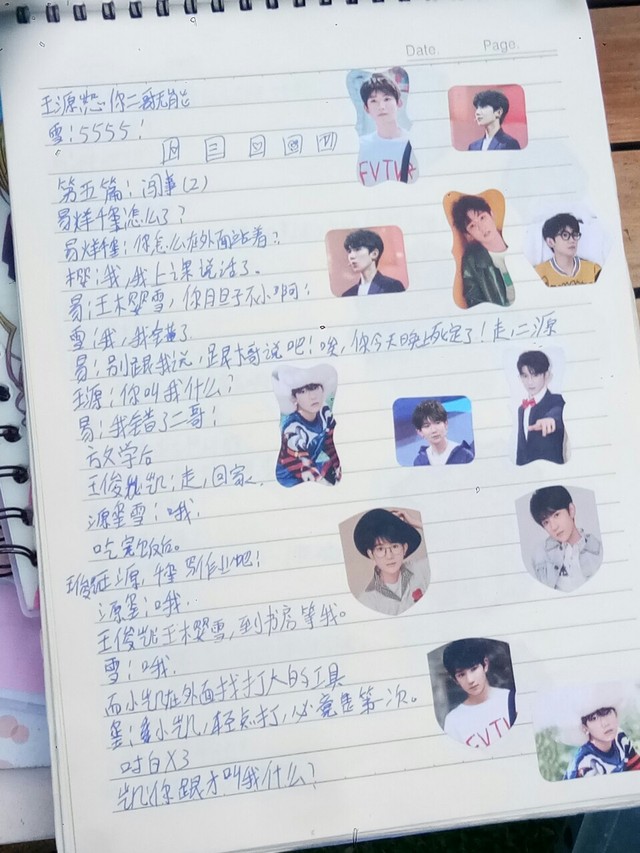 Date.
Page.
王源:恕你二哥无能
雪:5555!
第五篇:闯事(2)
易烊千玺怎么了?
易烊千玺:你怎么在外面站着?
樱:我,我上课说话了。
易:王樱雪,你胆子不小啊!
雪:我,我错了
易:别跟我说,跟大哥说吧!唉,你今天晚上死定了!走,二源
王源:你叫我什么?
易:我错了二哥!
方文学后
王俊凯:走,回家。
源玺雪:哦.
吃完饭后。
王俊凯:源,千玺写作业吧!
源玺:哦.
王俊凯:王樱雪,到书房等我。
雪:哦.
而小凯在外面找打人的工具
玺:小凯,轻点打,必竟是第一次。
对白X3
凯:你跟才叫我什么?
FVTV
FVTV